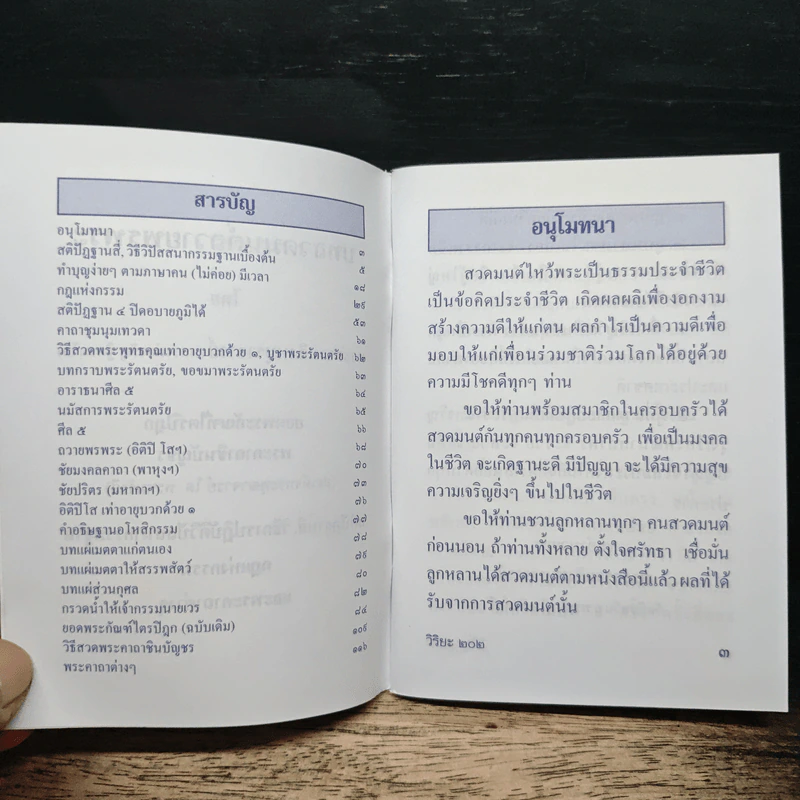 สารบัญ
อนุโมทนา ๓
สติปัฏฐานสี่, วิธีวิปัสสนากรรมฐานเบื้องต้น ๕
ทำบุญง่ายๆ ตามภาษาคน (ไม่ค่อย) มีเวลา ๑๘
กฎแห่งกรรม ๒๙
สติปัฏฐาน ๔ ปิดอบายภูมิได้ ๕๓
คาถาชุมนุมเทวดา ๖๑
วิธีสวดพระพุทธคุณเท่าอายุบวกด้วย ๑, บูชาพระรัตนตรัย ๖๒
บทกราบพระรัตนตรัย, ขอขมาพระรัตนตรัย ๖๓
อาราธนาศีล ๕ ๖๔
นมัสการพระรัตนตรัย ๖๕
ศีล ๕ ๖๖
ถวายพรพระ (อิติปิ โสฯ) ๖๘
ชัยมงคลคาถา (พาหุงฯ) ๗๐
ชัยปริตร (มหากาฯ) ๗๓
อิติปิโส เท่าอายุบวกด้วย ๑ ๗๖
คำอธิษฐานอโหสิกรรม ๗๗
บทแผ่เมตตาแก่ตนเอง ๗๘
บทแผ่เมตตาให้สรรพสัตว์ ๗๙
บทแผ่ส่วนกุศล ๘๐
กรวดน้ำให้เจ้ากรรมนายเวร ๘๒
ยอดพระกัณฑ์ไตรปิฎก (ฉบับเดิม) ๘๔
วิธีสวดพระคาถาชินบัญชร ๑๐๙
พระคาถาต่างๆ ๑๑๖
อนุโมทนา
สวดมนต์ไหว้พระเป็นธรรมประจำชีวิต
เป็นข้อคิดประจำชีวิต เกิดผลผลิเพื่องอกงาม
สร้างความดีให้แก่ตน ผลกำไรเป็นความดีเพื่อ
มอบให้แก่เพื่อนร่วมชาติร่วมโลกได้อยู่ด้วย
ความมีโชคดีทุกๆ ท่าน
ขอให้ท่านพร้อมสมาชิกในครอบครัวได้
สวดมนต์กันทุกคนทุกครอบครัว เพื่อเป็นมงคล
ในชีวิต จะเกิดฐานะดี มีปัญญา จะได้มีความสุข
ความเจริญยิ่งๆ ขึ้นไปในชีวิต
ขอให้ท่านชวนลูกหลานทุกๆ คนสวดมนต์
ก่อนนอน ถ้าท่านทั้งหลาย ตั้งใจศรัทธา เชื่อมั่น
ลูกหลานได้สวดมนต์ตามหนังสือนี้แล้ว ผลที่ได้
รับจากการสวดมนต์นั้น
วิริยะ ๒๐๒ ๓